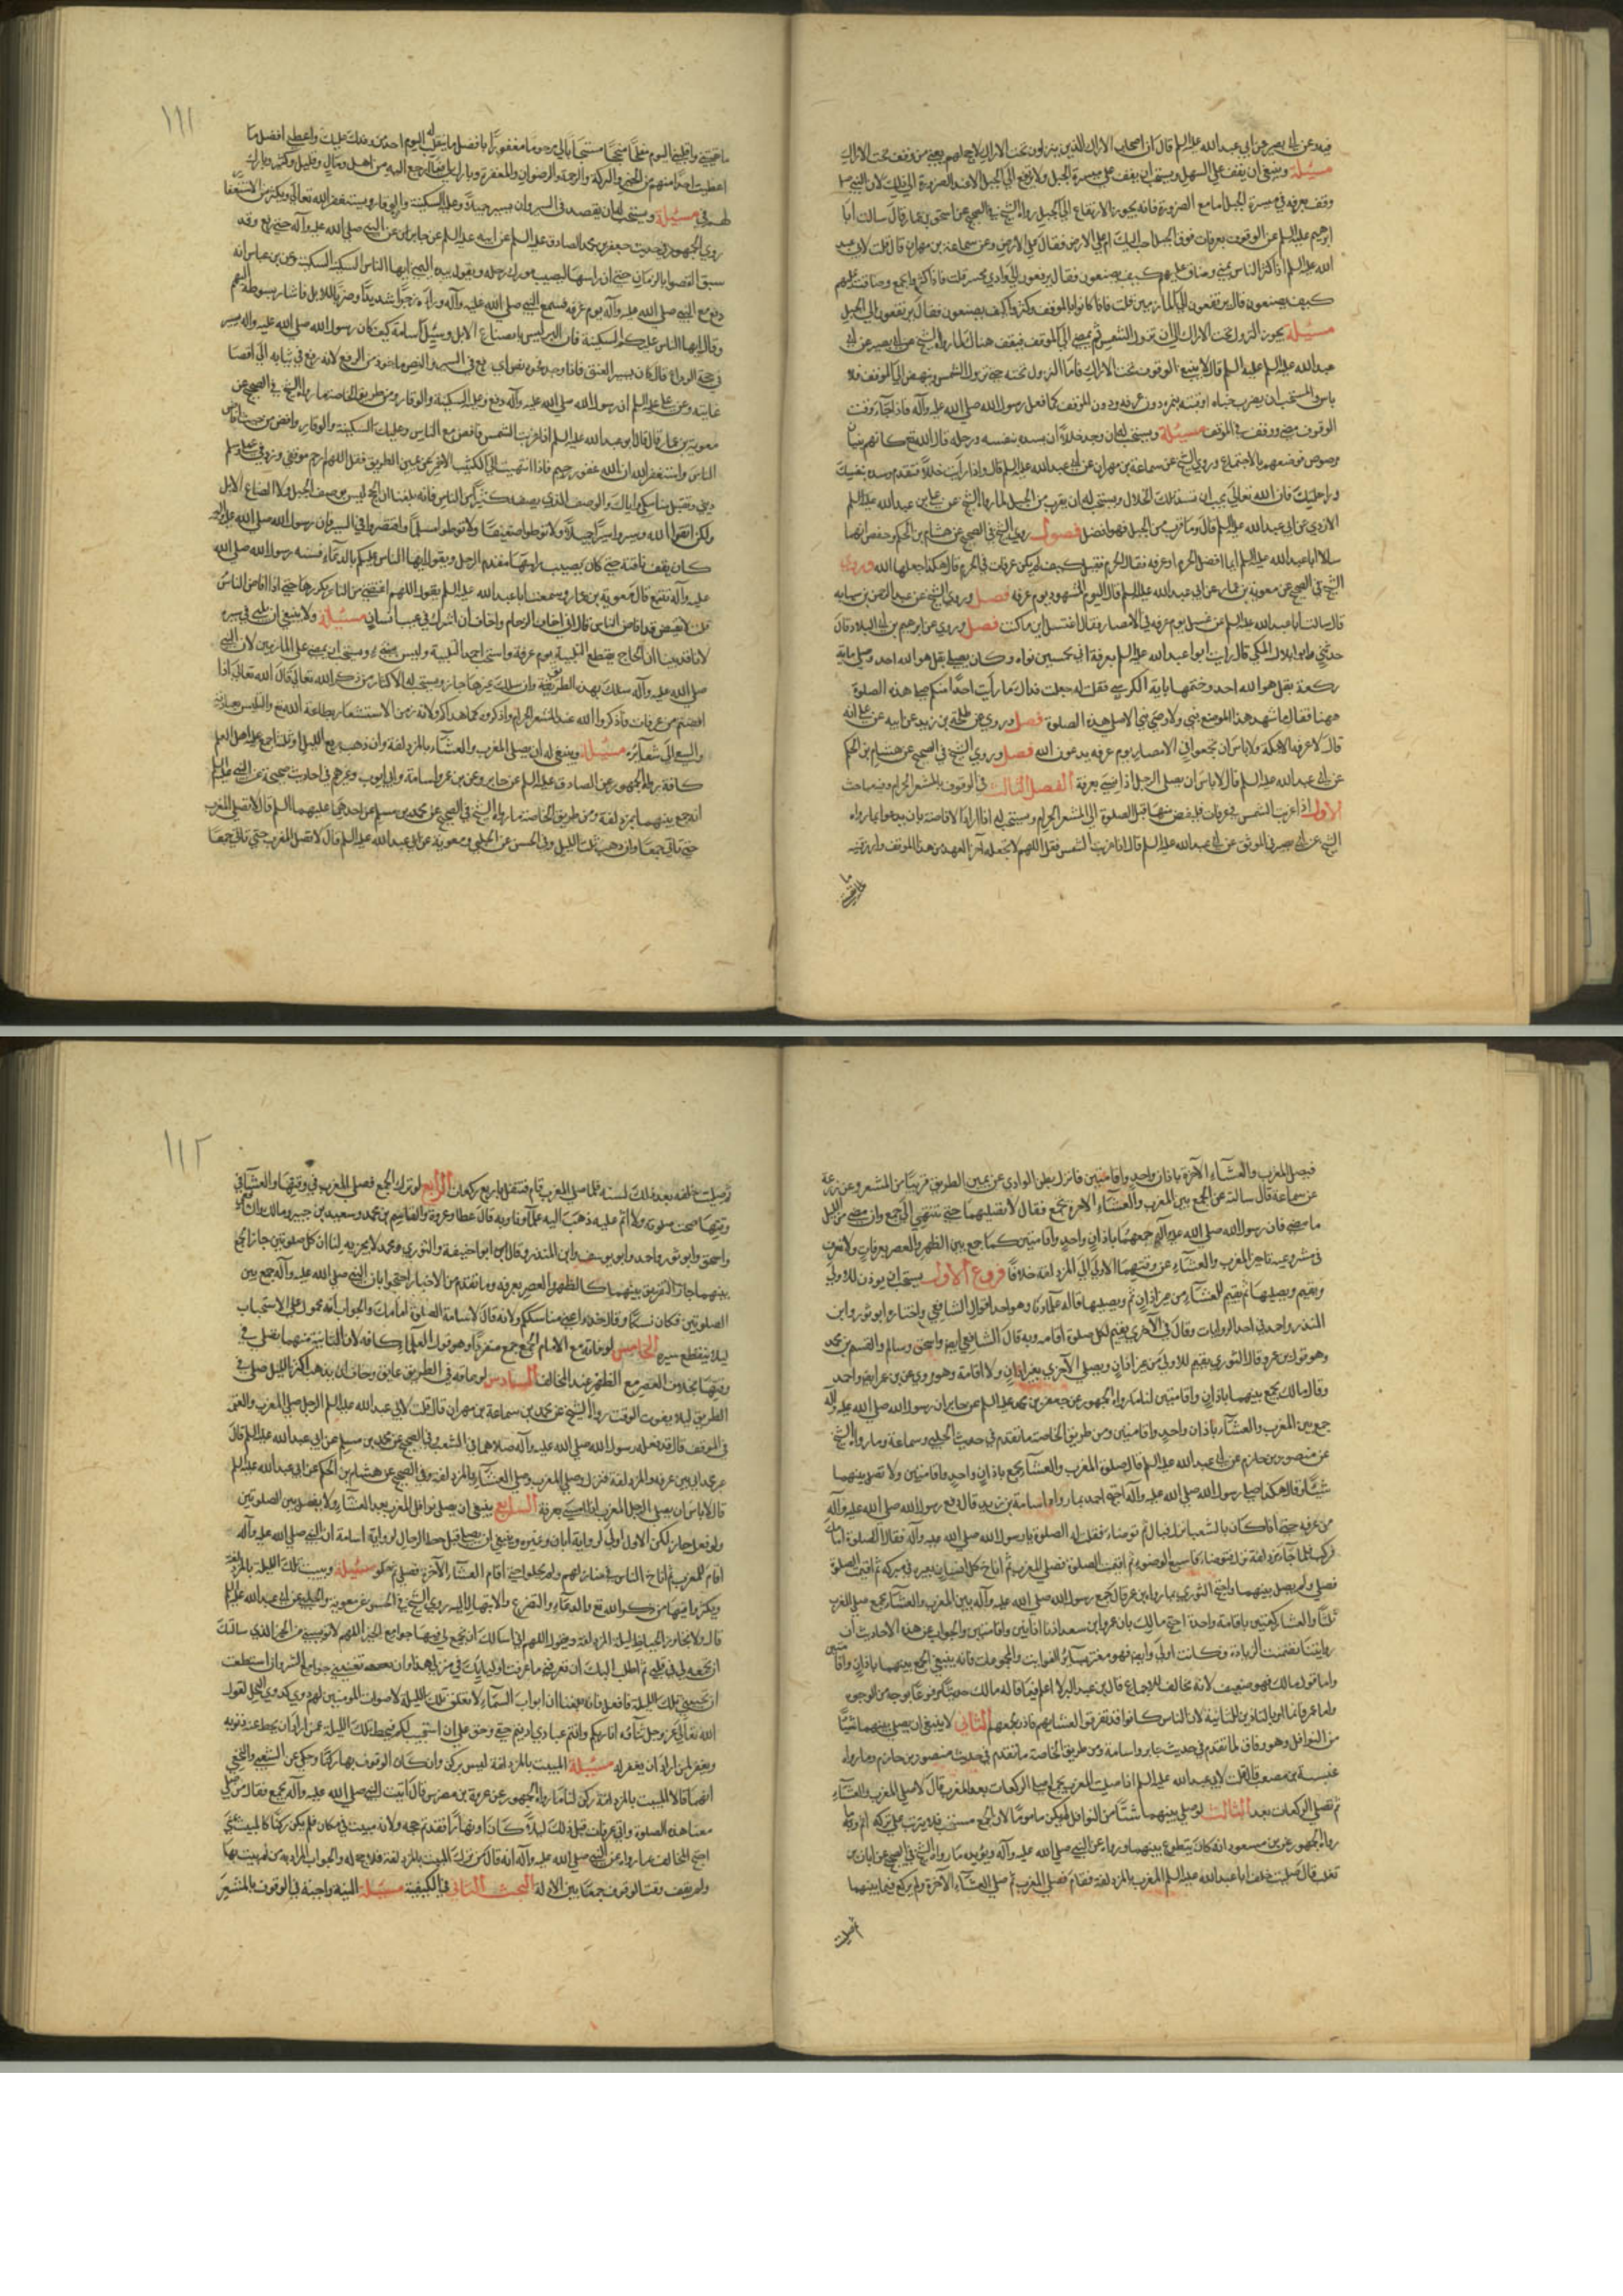 فيه وعن ابي بصير عن ابي عبد الله عليه السلم قال ان اصحاب الاراك الذين ينزلون تحت الاراك لا حج لهم يعني من وقف تحت الاراك
مسئلة وينبغي ان يقف على السهل ويستحب ان يقف على ميسرة الجبل ولا يرتفع الى الجبل الا عند الضرورة الى ذلك لان النبي
وقف بعرفة في ميسرة الجبل اما مع الضرورة فانه يجوز الارتفاع الى الجبل رواه الشيخ في الصحيح عن اسحق بن عمار قال سالت ابا
ابرهيم عليه السلم عن الوقوف بعرفات فوق الجبل احب اليك ام على الارض فقال على الارض وعن سماعة بن مهران قال قلت لابي عبد
الله عليه السلم اذا كثر الناس بمنى وضاقت عليهم كيف يصنعون فقال يرتفعون الى وادي محسر قلت فاذا كثروا بجمع وضاقت عليهم
كيف يصنعون قال يرتفعون الى المازمين قلت فاذا كانوا بالموقف وكثروا كيف يصنعون فقال يرتفعون الى الجبل
مسئلة يجوز النزول تحت الاراك الى ان تزول الشمس ثم يمضي الى الموقف فيقف هناك لما رواه الشيخ عن ابي بصير عن ابي
عبد الله عليه السلم قال لا ينبغي الوقوف تحت الاراك فاما النزول تحته حتى تزول الشمس وينهض الى الموقف فلا
باس والمستحب ان يضرب خباه او قبته بنمرة دون عرفة ودون الموقف كما فعل رسول الله صلى الله عليه وآله فاذا جاء وقت
الوقوف مضى ووقف في الموقف مسئلة ويستحب له ان وجد خللا ان يسده بنفسه ورحله قال الله تع كانهم بنيان
مرصوص فوصفهم بالاجتماع وروى الشيخ عن سماعة بن مهران عن ابي عبد الله عليه السلم قال واذا رايت خللا فتقدم فسده بنفسك
وراحلتك فان الله تعالى يحب ان تسد تلك الخلال ويستحب له ان يقرب من الجبل لما رواه الشيخ عن عبد الله
الازدي عن ابي عبد الله عليه السلم قال وما قرب من الجبل فهو افضل فصول روى الشيخ في الصحيح عن هشام بن الحكم وحفص انهما
سالا ابا عبد الله عليه السلم ايما افضل الحرم او عرفة فقال الحرم فقيل كيف لم يكن عرفات في الحرم قال هكذا جعلها الله وروى
الشيخ في الصحيح عن معوية بن عمار عن ابي عبد الله عليه السلم قال اليوم المشهود يوم عرفة فصل وروى الشيخ عن عبد الرحمن بن سيابه
قال سالت ابا عبد الله عليه السلم عن غسل يوم عرفة في الامصار فقال اغتسل اين ما كنت فصل وروى عن ابرهيم بن ابي البلاد قال
حدثني ابو بلال المكي قال رايت ابا عبد الله عليه السلم بعرفة اتى بخمسين نواة وكان يصلي بقل هو الله احد وصلى ماية
ركعة بقل هو الله احد وختمها باية الكرسي فقلت له جعلت فداك ما رايت احدا منكم صلى هذه الصلوة
ههنا فقال ما شهد هذا الموضع نبي ولا وصي نبي الا صلى هذه الصلوة فصل وروى عن طلحة بن زيد عن ابيه عن علي انه
قال لا عرفة الا بمكة ولا باس ان يجتمعوا في الامصار يوم عرفة يدعون الله فصل وروى الشيخ في الصحيح عن هشام بن الحكم
عن ابي عبد الله عليه السلم قال لا باس ان يصلي الرجل اذا امسى بعرفة الفصل الثالث في الوقوف بالمشعر الحرام وفيه مباحث
الاول اذا غربت الشمس في عرفات فليفض منها قبل الصلوة الى المشعر الحرام ويستحب له اذا اراد الافاضة بان يدعوا بما رواه
الشيخ عن ابي بصير في الموثق عن ابي عبد الله عليه السلم قال اذا غربت الشمس فقل اللهم لا تجعله آخر العهد من هذا الموقف وارزقنيه
١١١
ما حججتني واقلبني اليوم مفلحا منجحا مستجابا لي مرحوما مغفورا بافضل ما ينقلب به اليوم احد من وفدك عليك واعطني افضل ما
اعطيت احدا منهم من الخير والبركة والرحمة والرضوان والمغفرة وبارك لي فيما ارجع اليه من اهل ومال وقليل وكثير وبارك
لهم في مسئلة ويستحب له ان يقصد في السير وان يسير سيرا جميلا وعليه السكينة والوقار ويستغفر الله تعالى ويكثر من الاستغفار
روى الجمهور في حديث جعفر بن محمد الصادق عليه السلم عن ابيه عليه السلم عن جابر ان عن النبي صلى الله عليه وآله حتى دفع وقد
شنق القصوا بالزمام حتى ان راسها ليصيب مورك رحله ويقول بيده اليمنى ايها الناس السكينة السكينة وعن ابن عباس انه
دفع مع النبي صلى الله عليه وآله يوم عرفة فسمع النبي صلى الله عليه وآله وراءه زجرا شديدا وضربا للابل فاشار بسوطه اليهم
وقال ايها الناس عليكم السكينة فان البر ليس بايضاع الابل وسئل اسامة كيف كان رسول الله صلى الله عليه وآله يسير
في حجة الوداع قال كان يسير العنق فاذا وجد فجوة نص
غايته وعن علي عليه السلم ان رسول الله صلى الله عليه وآله دفع وعليه السكينة والوقار ومن طريق الخاصة ما رواه الشيخ في الصحيح عن
معوية بن عمار قال قال ابو عبد الله عليه السلم اذا غربت الشمس فافض مع الناس وعليك السكينة والوقار وافض من حيث افاض
الناس واستغفر الله ان الله غفور رحيم فاذا انتهيت الى الكثيب الاحمر عن يمين الطريق فقل اللهم ارحم موقفي وزد في عملي وسلم
ديني وتقبل مناسكي واياك والوصف الذي يصنعه كثير من الناس فانه بلغنا ان الحج ليس بوصف الخيل ولا ايضاع الابل
ولكن اتقوا الله وسيروا سيرا جميلا ولا توطوا ضعيفا ولا توطوا مسلما واقتصدوا في السير فان رسول الله صلى الله عليه وآله
كان يقف ناقته حتى كان يصيب راسها مقدم الرحل ويقول ايها الناس عليكم بالدعة فسنة رسول الله صلى الله
عليه وآله تتبع قال معوية بن عمار وسمعت ابا عبد الله عليه السلم يقول اللهم اعتقني من النار يكررها حتى افاض الناس
قلت الا تفيض قد افاض الناس قال اني اخاف الزحام واخاف ان اشرك في عنت انسان مسئلة ولا ينبغي ان يلبي في سيره
لانا قد بينا ان الحاج يقطع التلبية يوم عرفة واستحب احمد التلبية وليس بمعتمد وينبغي ان يمضي على المازمين لان النبي
صلى الله عليه وآله سلك هذه الطريق وان سلك غيرها جاز ويستحب له الاكثار من ذكر الله تعالى قال الله تعالى فاذا
افضتم من عرفات فاذكروا الله عند المشعر الحرام واذكروه كما هداكم ولانه زمن الاستشعار بطاعة الله تع والتلبس بعبادته
والسعي الى شعائره مسئلة وينبغي له ان يصلي المغرب والعشاء بالمزدلفة وان ذهب ربع الليل او ثلثه اجمع عليه اهل العلم
كافة رواه الجمهور عن الصادق عليه السلم عن جابر وعن ابن عمر واسامة وابي ايوب وغيرهم في احاديث صحيحة عن النبي عليه السلم
انه جمع بينهما بمزدلفة ومن طريق الخاصة ما رواه الشيخ في الصحيح عن محمد بن مسلم عن احدهما عليهما السلم قال لا تصل المغرب
حتى تاتي جمعا وان ذهب ثلث الليل وفي الحسن عن الحلبي ومعوية عن ابي عبد الله عليه السلم قال لا تصل المغرب حتى تاتي جمعا
فيصلي المغرب والعشاء الآخرة باذان واحد واقامتين فانزل بطن الوادي عن يمين الطريق قريبا من المشعر وعن زرعة
عن سماعة قال سالته عن الجمع بين المغرب والعشاء الآخرة بجمع فقال لا تصليهما حتى تنتهي الى جمع وان مضى من الليل
ما مضى فان رسول الله صلى الله عليه وآله جمعهما باذان واحد واقامتين كما جمع بين الظهر والعصر بعرفات ولا نعرف
في مشروعية تاخير المغرب والعشاء عن وقتهما الاول الى المزدلفة خلافا فروع الاول يستحب ان يؤذن للاولى
ويقيم ويصليها ثم يقيم للعشاء من غير اذان ثم ويصليها قاله علماؤنا وهو احد اقوال الشافعي واختاره ابو ثور وابن
المنذر واحمد في احد الروايات وقال في الآخر يقيم لكل صلوة اقامة وبه قال الشافعي ايضا واسحق وسالم والقسم بن محمد
وهو قول ابن عمر وقال الثوري يقيم للاولى من غير اذان ويصلي الآخرى بغير اذان ولا اقامة وهو مروي عن ابن عمر ايضا واحمد
وقال مالك يجمع بينهما باذانين واقامتين لنا ما رواه الجمهور عن جعفر بن محمد عليه السلم عن جابر ان رسول الله صلى الله عليه وآله
جمع بين المغرب والعشاء باذان واحد واقامتين ومن طريق الخاصة ما تقدم في حديث الحلبي وسماعة وما رواه الشيخ
عن منصور بن حازم عن ابي عبد الله عليه السلم قال صلوة المغرب والعشاء بجمع باذان واحد واقامتين ولا تصل بينهما
شيئا وقال هكذا صلى رسول الله صلى الله عليه وآله احتج احمد بما رواه اسامة بن زيد قال دفع رسول الله صلى الله عليه وآله
من عرفة حتى اذا كان بالشعب نزل فبال ثم توضاء فقلت له الصلوة يا رسول الله صلى الله عليه وآله فقال الصلوة امامك
فركب فلما جاء مزدلفة نزل فتوضاء فاسبغ الوضوء ثم اقيمت الصلوة فصلى المغرب ثم اناخ كل انسان بعيره في مبركه ثم اقيمت الصلوة
فصلى ولم يصل بينهما واحتج الثوري بما رواه ابن عمر قال جمع رسول الله صلى الله عليه وآله بين المغرب والعشاء بجمع صلى المغرب
ثلثا والعشاء ركعتين باقامة واحدة احتج مالك بان عمر وابن مسعود اذنا اذانين واقامتين والجواب عن هذه الاحاديث ان
روايتنا تضمنت الزيادة فكانت اولى وايضا فهو معتبر بسائر الفوايت والمجموعات فانه ينبغي الجمع بينهما باذان واقامتين
واما قول مالك فهو ضعيف لانه مخالف للاجماع قال ابن عبد البر لا اعلم فيما قاله مالك حديثا مرفوعا بوجه من الوجوه
واما عمر فانما امر بالتاذين للثانية لان الناس كانوا قد تفرقوا لعشائهم فاذن لجمعهم الثاني لا ينبغي ان يصلي بينهما شيئا
من النوافل وهو وفاق لما تقدم في حديث جابر واسامة ومن طريق الخاصة ما تقدم في حديث منصور بن حازم وما رواه
عنبسة بن مصعب قال قلت لابي عبد الله عليه السلم اذا صليت المغرب بجمع اصلي الركعات بعد المغرب قال لا صل المغرب والعشاء
ثم تصلي الركعات بعد الثالث لو صلى بينهما شيئا من النوافل لم يكن ماثوما لان الجمع مستحب فلا يترتب على تركه اثم وقد
رواه الجمهور عن ابن مسعود انه كان يتطوع بينهما ورواه عن النبي صلى الله عليه وآله ويؤيده ما رواه الشيخ في الصحيح عن ابان بن
تغلب قال صليت خلف ابا عبد الله عليه السلم المغرب بالمزدلفة فقام فصلى المغرب ثم صلى العشاء الآخرة ولم يركع فيما بينهما
١١٢
وصليت خلفه بعد ذلك بسنة فلما صلى المغرب قام فتنفل باربع ركعات الرابع لو ترك الجمع فصلى المغرب في وقتها والعشاء في
وقتها صحت صلوته ولا اثم عليه ذهب اليه علماؤنا وبه قال عطا وعروة والقاسم بن محمد وسعيد بن جبير ومالك والشافعي
واسحق وابو ثور واحمد وابو يوسف وابن المنذر وقال ابو حنيفة والثوري ومحمد لا يجزيه لنا ان كل صلوتين جاز الجمع
بينهما جاز التفريق بينهما كالظهر والعصر بعرفة وما تقدم من الاخبار احتجوا بان النبي صلى الله عليه وآله جمع بين
الصلوتين فكان نسكا وقال خذوا عني مناسككم ولانه قال لاسامة الصلوة امامك والجواب انه محمول على الاستحباب
ليلا ينقطع سيره الخامس لو فاته مع الامام الجمع جمع منفردا وهو قول العلماء كافة لان الثانية منهما تصلى في
وقتها بخلاف العصر مع الظهر عند المخالف السادس لو عاقه في الطريق عايق وخاف ان يذهب اكثر الليل صلى في
الطريق ليلا يفوت الوقت رواه الشيخ عن محمد بن سماعة بن مهران قال قلت لابي عبد الله عليه السلم الرجل صلى المغرب والعتمة
في الموقف قال قد فعله رسول الله صلى الله عليه وآله صلاهما في الشعب وفي الصحيح عن محمد بن مسلم عن ابي عبد الله عليه السلم قال
عثر محمل ابي بين عرفة والمزدلفة فنزل وصلى المغرب وصلى العشاء بالمزدلفة وفي الصحيح عن هشام بن الحكم عن ابي عبد الله عليه السلم
قال لا باس ان يصلي الرجل المغرب اذا امسى بعرفة السابع ينبغي ان يصلي نوافل المغرب بعد العشاء ولا يفصل بين الصلوتين
ولو فعل جاز لكن الاول اولى لرواية ابان وغيره وينبغي ان يصلي قبل حط الرحال لرواية اسامة ان النبي صلى الله عليه وآله
اقام للمغرب ثم اناخ الناس في منازلهم ولم يحلوا حتى اقام العشاء الآخرة فصلى ثم حلوا مسئلة ويبيت تلك الليلة بالمزدلفة
ويكثر فيها من ذكر الله تع والدعاء والتضرع والابتهال اليه روى الشيخ في الحسن عن معوية والحلبي عن ابي عبد الله عليه السلم
قال ولا تجاوز الحياض ليلة المزدلفة ويقول اللهم اني اسالك ان تجمع لي فيها جوامع الخير اللهم لا تويسني من الخير الذي سالتك
ان تجمعه لي في قلبي ثم اطلب اليك ان تعرفني ما عرفت اولياءك في منزلي هذا وان تقيني جوامع الشر وان استطعت
ان تحيي تلك الليلة فافعل فانه بلغنا ان ابواب السماء لا تغلق تلك الليلة لاصوات المؤمنين لهم دوي كدوي النحل يقول
الله تعالى عز وجل ثناؤه انا ربكم وانتم عبادي اديتم حقي وحق علي ان استجيب لكم فيحط تلك الليلة عمن اراد ان يحط عنه ذنوبه
ويغفر لمن اراد ان يغفر له مسئلة المبيت بالمزدلفة ليس بركن وان كان الوقوف بها ركنا وحكي عن الشعبي والنخعي
انهما قالا المبيت بالمزدلفة ركن لنا ما رواه الجمهور عن عروة بن مضرس قال اتيت النبي صلى الله عليه وآله بجمع فقال من صلى
معنا هذه الصلوة واتى عرفات قبل ذلك ليلا كان او نهارا فقد تم حجه ولانه مبيت في مكان فلم يكن ركنا كالمبيت بمنى
احتج المخالف بما رواه عن النبي صلى الله عليه وآله انه قال من ترك المبيت بالمزدلفة فلا حج له والجواب المراد به من لم يبت بها
ولم يقف وقت الوقوف جمعا بين الادلة البحث الثاني في الكيفية مسئلة النية واجبة في الوقوف بالمشعر